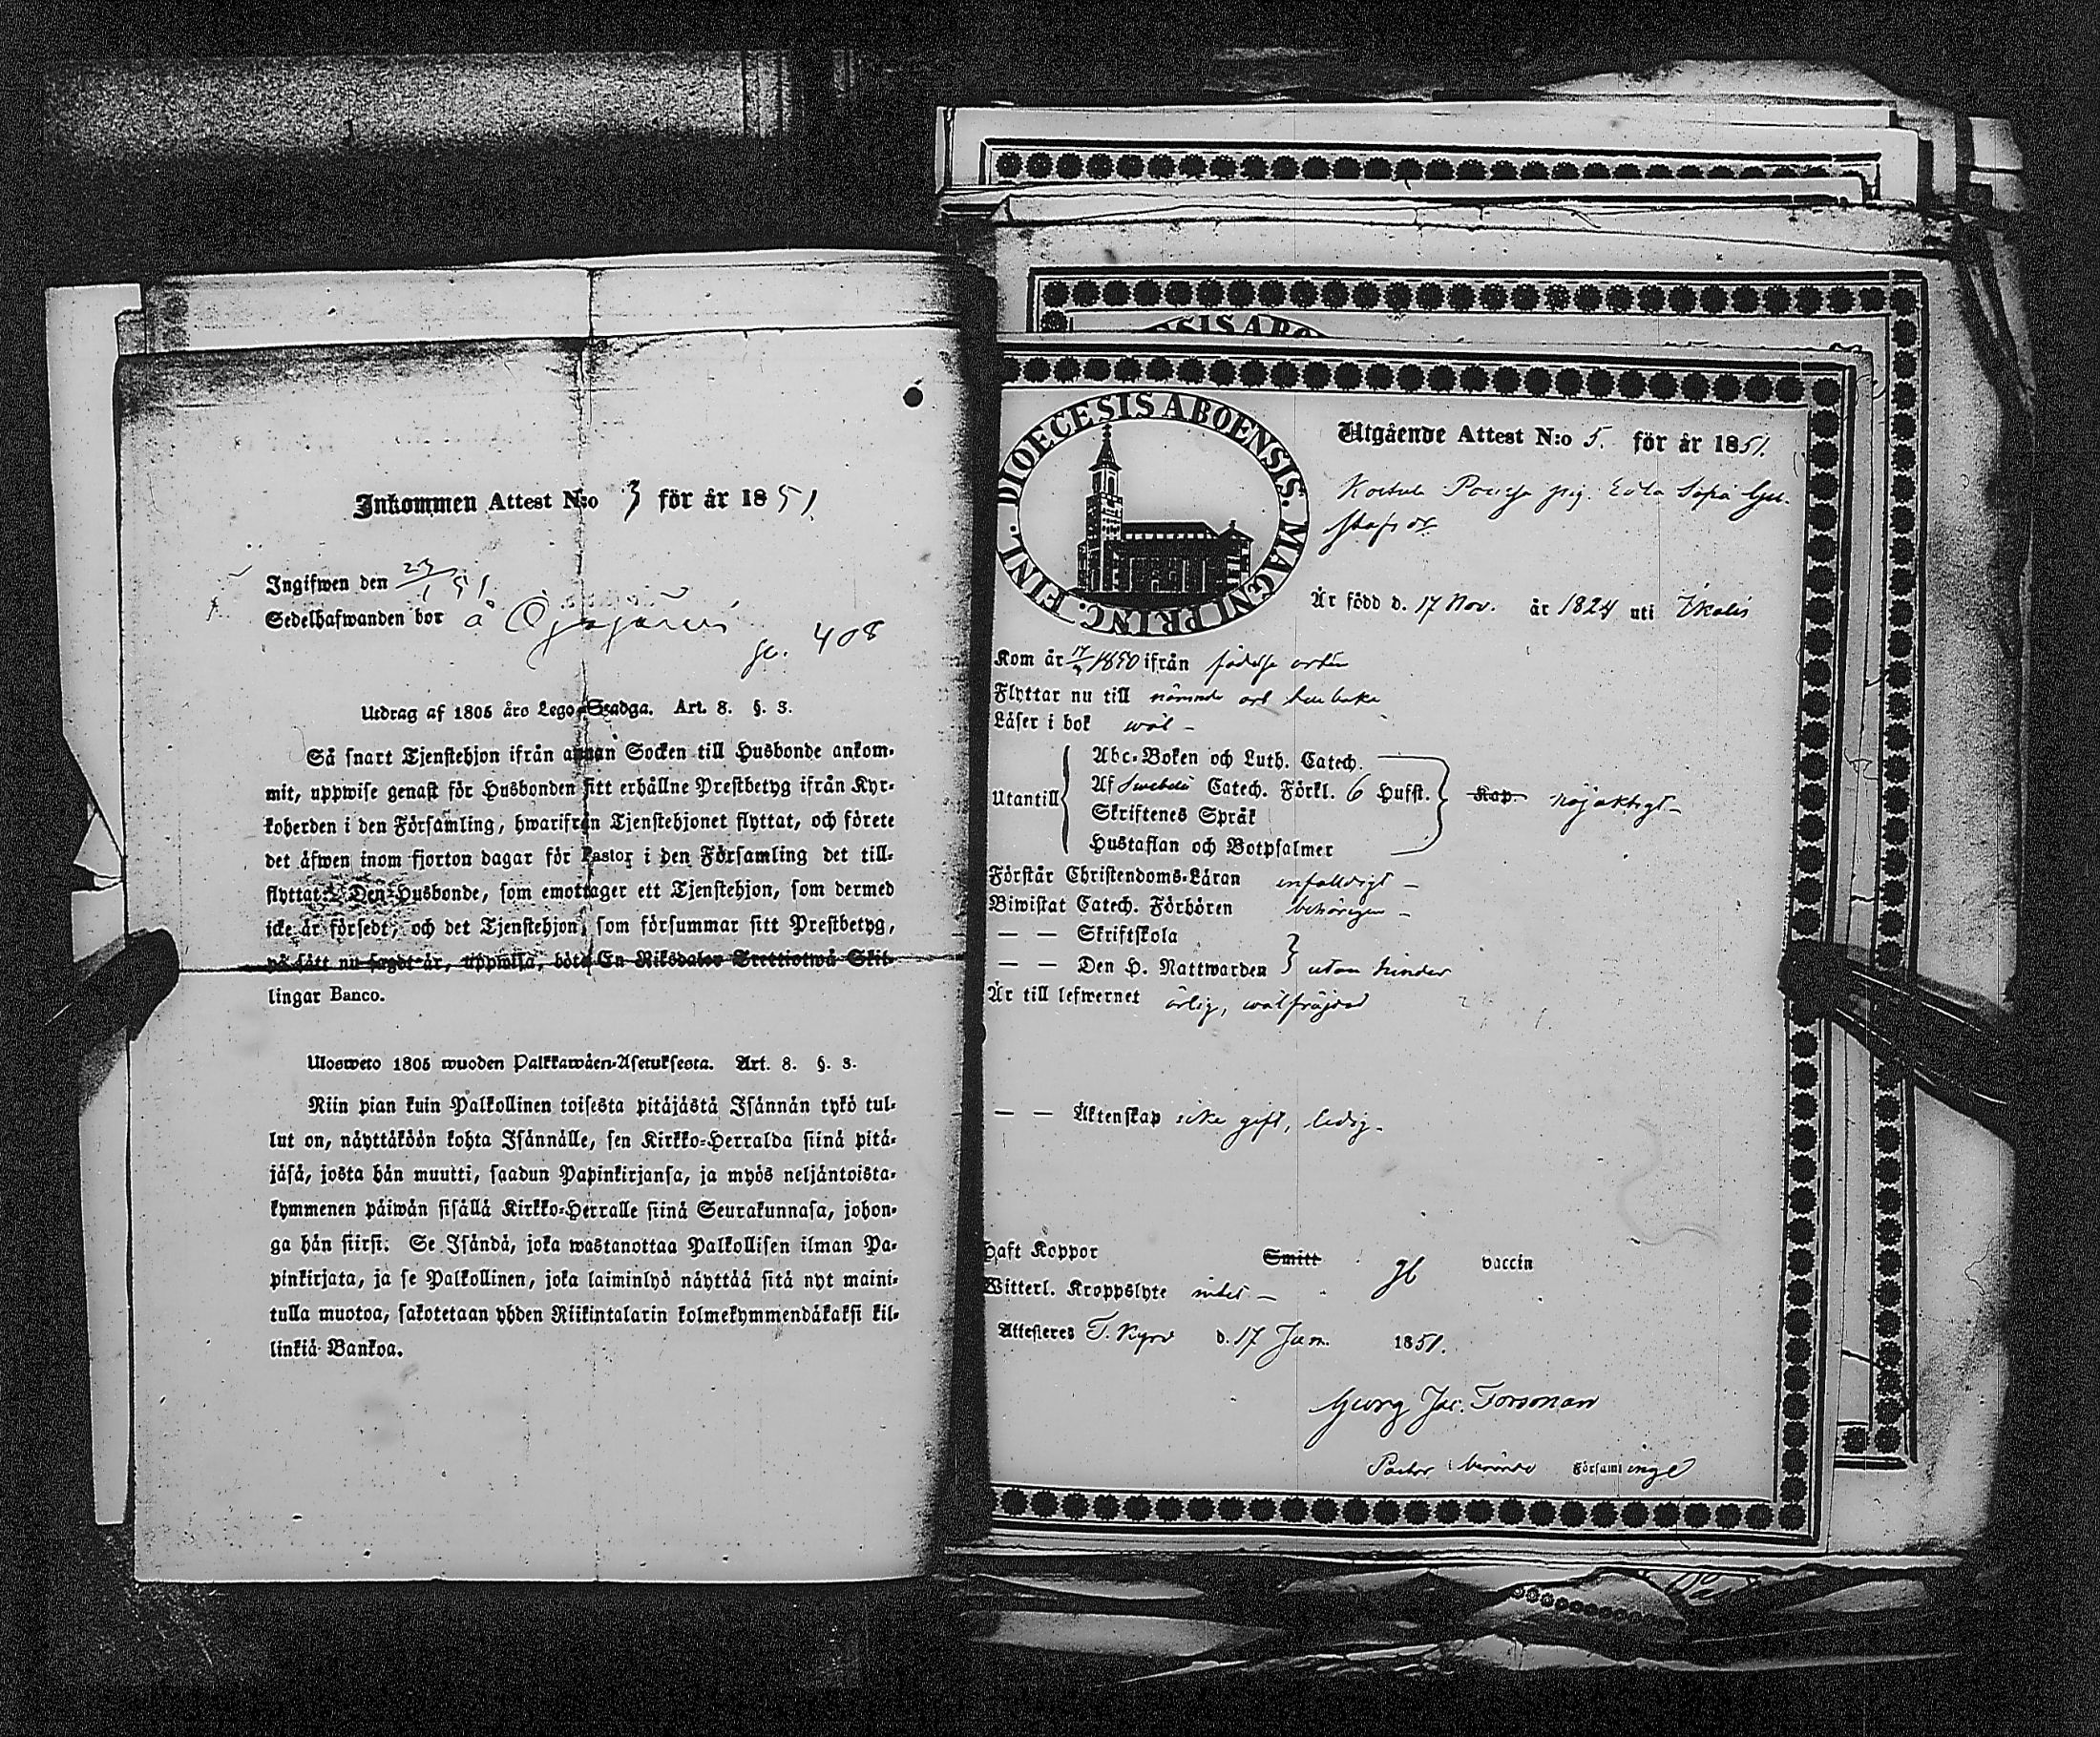 Inkommen Attest N:o 3 för år 1851.
Ingifwen den 23/1 51.
Sedelhafwanden bor å Öjsjärvi
408
Utdrag af 1805 års Lego-Stadga. Art. 8. §. 3.
Så snart Tjenstehjon ifrån annan Socken till Husbonde ankom-
mit, uppwise genast för Husbonden sitt erhållne Prestbetyg ifrån Kyr-
koherden i den Församling, hwarifrån Tjenstehjonet flyttat, och förete
det äfwen inom fjorton dagar för Pastor i den Församling det till-
flyttat. Den Husbonde, som emottager ett Tjenstehjon, som dermed
icke är försedt, och det Tjenstehjon, som försummar sitt Prestbetyg,
på sätt nu sagdt är, uppwisa, böte En Riksdaler Trettiotwå Skil-
lingar Banco.
Ulosweto 1805 wuoden Palkkawäen-Asetuksesta. Art. 8. §. 3.
Niin pian kuin Palkollinen toisesta pitäjästä Isännän tykö tul-
lut on, näyttäköön kohta Isännälle, sen Kirkko-Herralda siinä pitä-
jäsä, josta hän muutti, saadun Papinkirjansa, ja myös neljäntoista-
kymmenen päiwän sisällä Kirkko-Herralle siinä Seurakunnasa, johon-
ga hän siirsi. Se Isändä, joka wastanottaa Palkollisen ilman Pa-
pinkirjata, ja se Palkollinen, joka laiminlyö näyttää sitä nyt maini-
tulla muotoa, sakotetaan yhden Riikintalarin kolmekymmendäkaksi kil-
linkiä Bankoa.
SIS ABO
DIOECESIS ABOENSIS. MAGNI PRINC. FINL.
Utgående Attest N:o 5. för år 1851.
pig. Eva Sofia Gu-
stafs dr
Är född d. 17 Nov. år 1824 uti Ikalis
Kom år 1850 ifrån födelse orten
Flyttar nu till nämnde ort tillbaka
Läser i bok wäl -
Utantill
Abc-Boken och Luth. Catech.
Af Swebelii Catech. Förkl. 6 Hufst.
Skriftenes Språk
Hustaflan och Botpsalmer
Kap. nöjaktigt -
Förstår Christendoms-Läran enfaldigt -
Biwistat Catech. Förhören behörigen -
— — Skriftskola
— — Den H. Nattwarden utan hinder
Är till lefwernet ärlig, wälfräjdad
— — Äktenskap icke gift, ledig.
Haft Koppor Smitt vaccin
Witterl. Kroppslyte intet -
Attesteres T. Kyro d. 17 Jan. 1851.
Georg Jac. Forsman
Pastor i berörde Församlinge